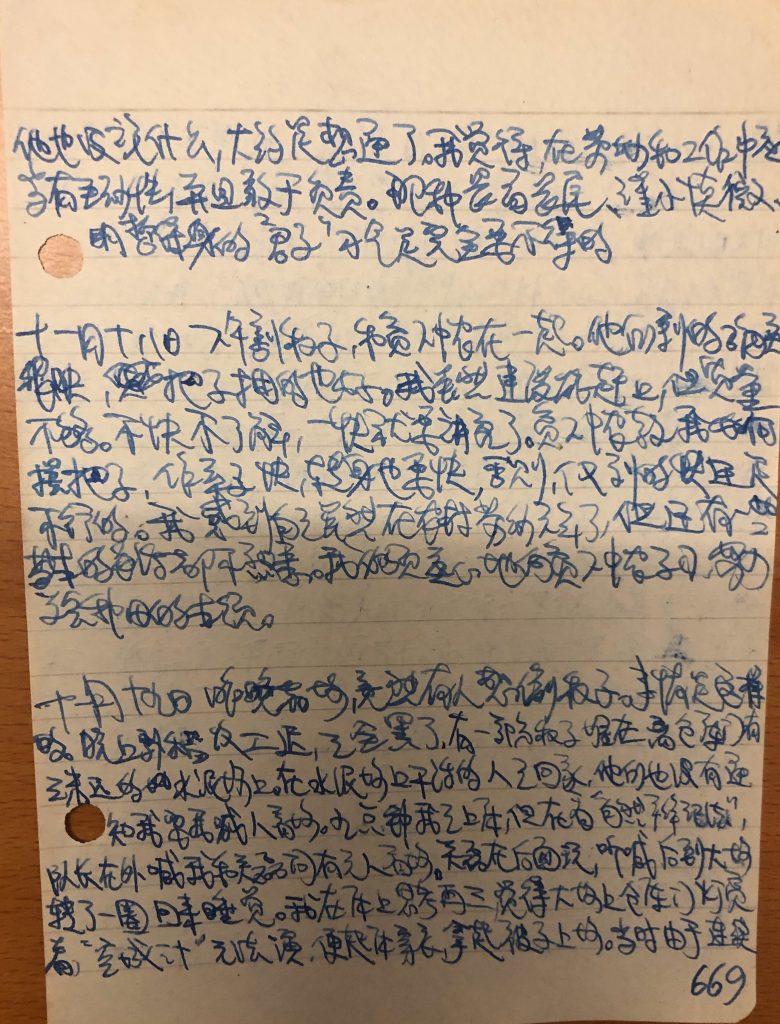 他也没说什么，大约是想通了。我觉得，在劳动和工作中应
当有主动性，并且敢于负责。那种畏首畏尾、谨小慎微、
明哲保身的“君子”习气是完全要不得的
十一月十八日 下午割秄子，和贫下中农在一起。他们割的
很快，把子捆的也好。我虽然速度能赶上，但质量
不够。不快不了解，一快就要讲究了。贫下中农教我
摆把子，快，转身也要快，否则，仅割的快还是
不行的。我感到自己虽然在农村劳动三年了，但还有一些
基本的都不熟。我必须虚心地向贫下中农学习，努力
学会种田的本领。
十一月十九日 昨晚看场，竟然有人想偷秄子。事情是这样
的。晚上收工迟，天全黑了，有一部分秄子堆在离仓库门有
米远的水泥场上。在水泥场上干活的人已回家，他们也没有通
知我要我喊人看场。九点钟我已上床，但在看“自然辩证法”，
队长在外喊我和问有无人看场。在后面说，听喊后到大场
转了一圈回来睡觉。我在床上思考再三，觉得大场上仓库门灯亮
着，“空城计”无法演，便起床穿衣，拿起被子上场。当时由于连续
669